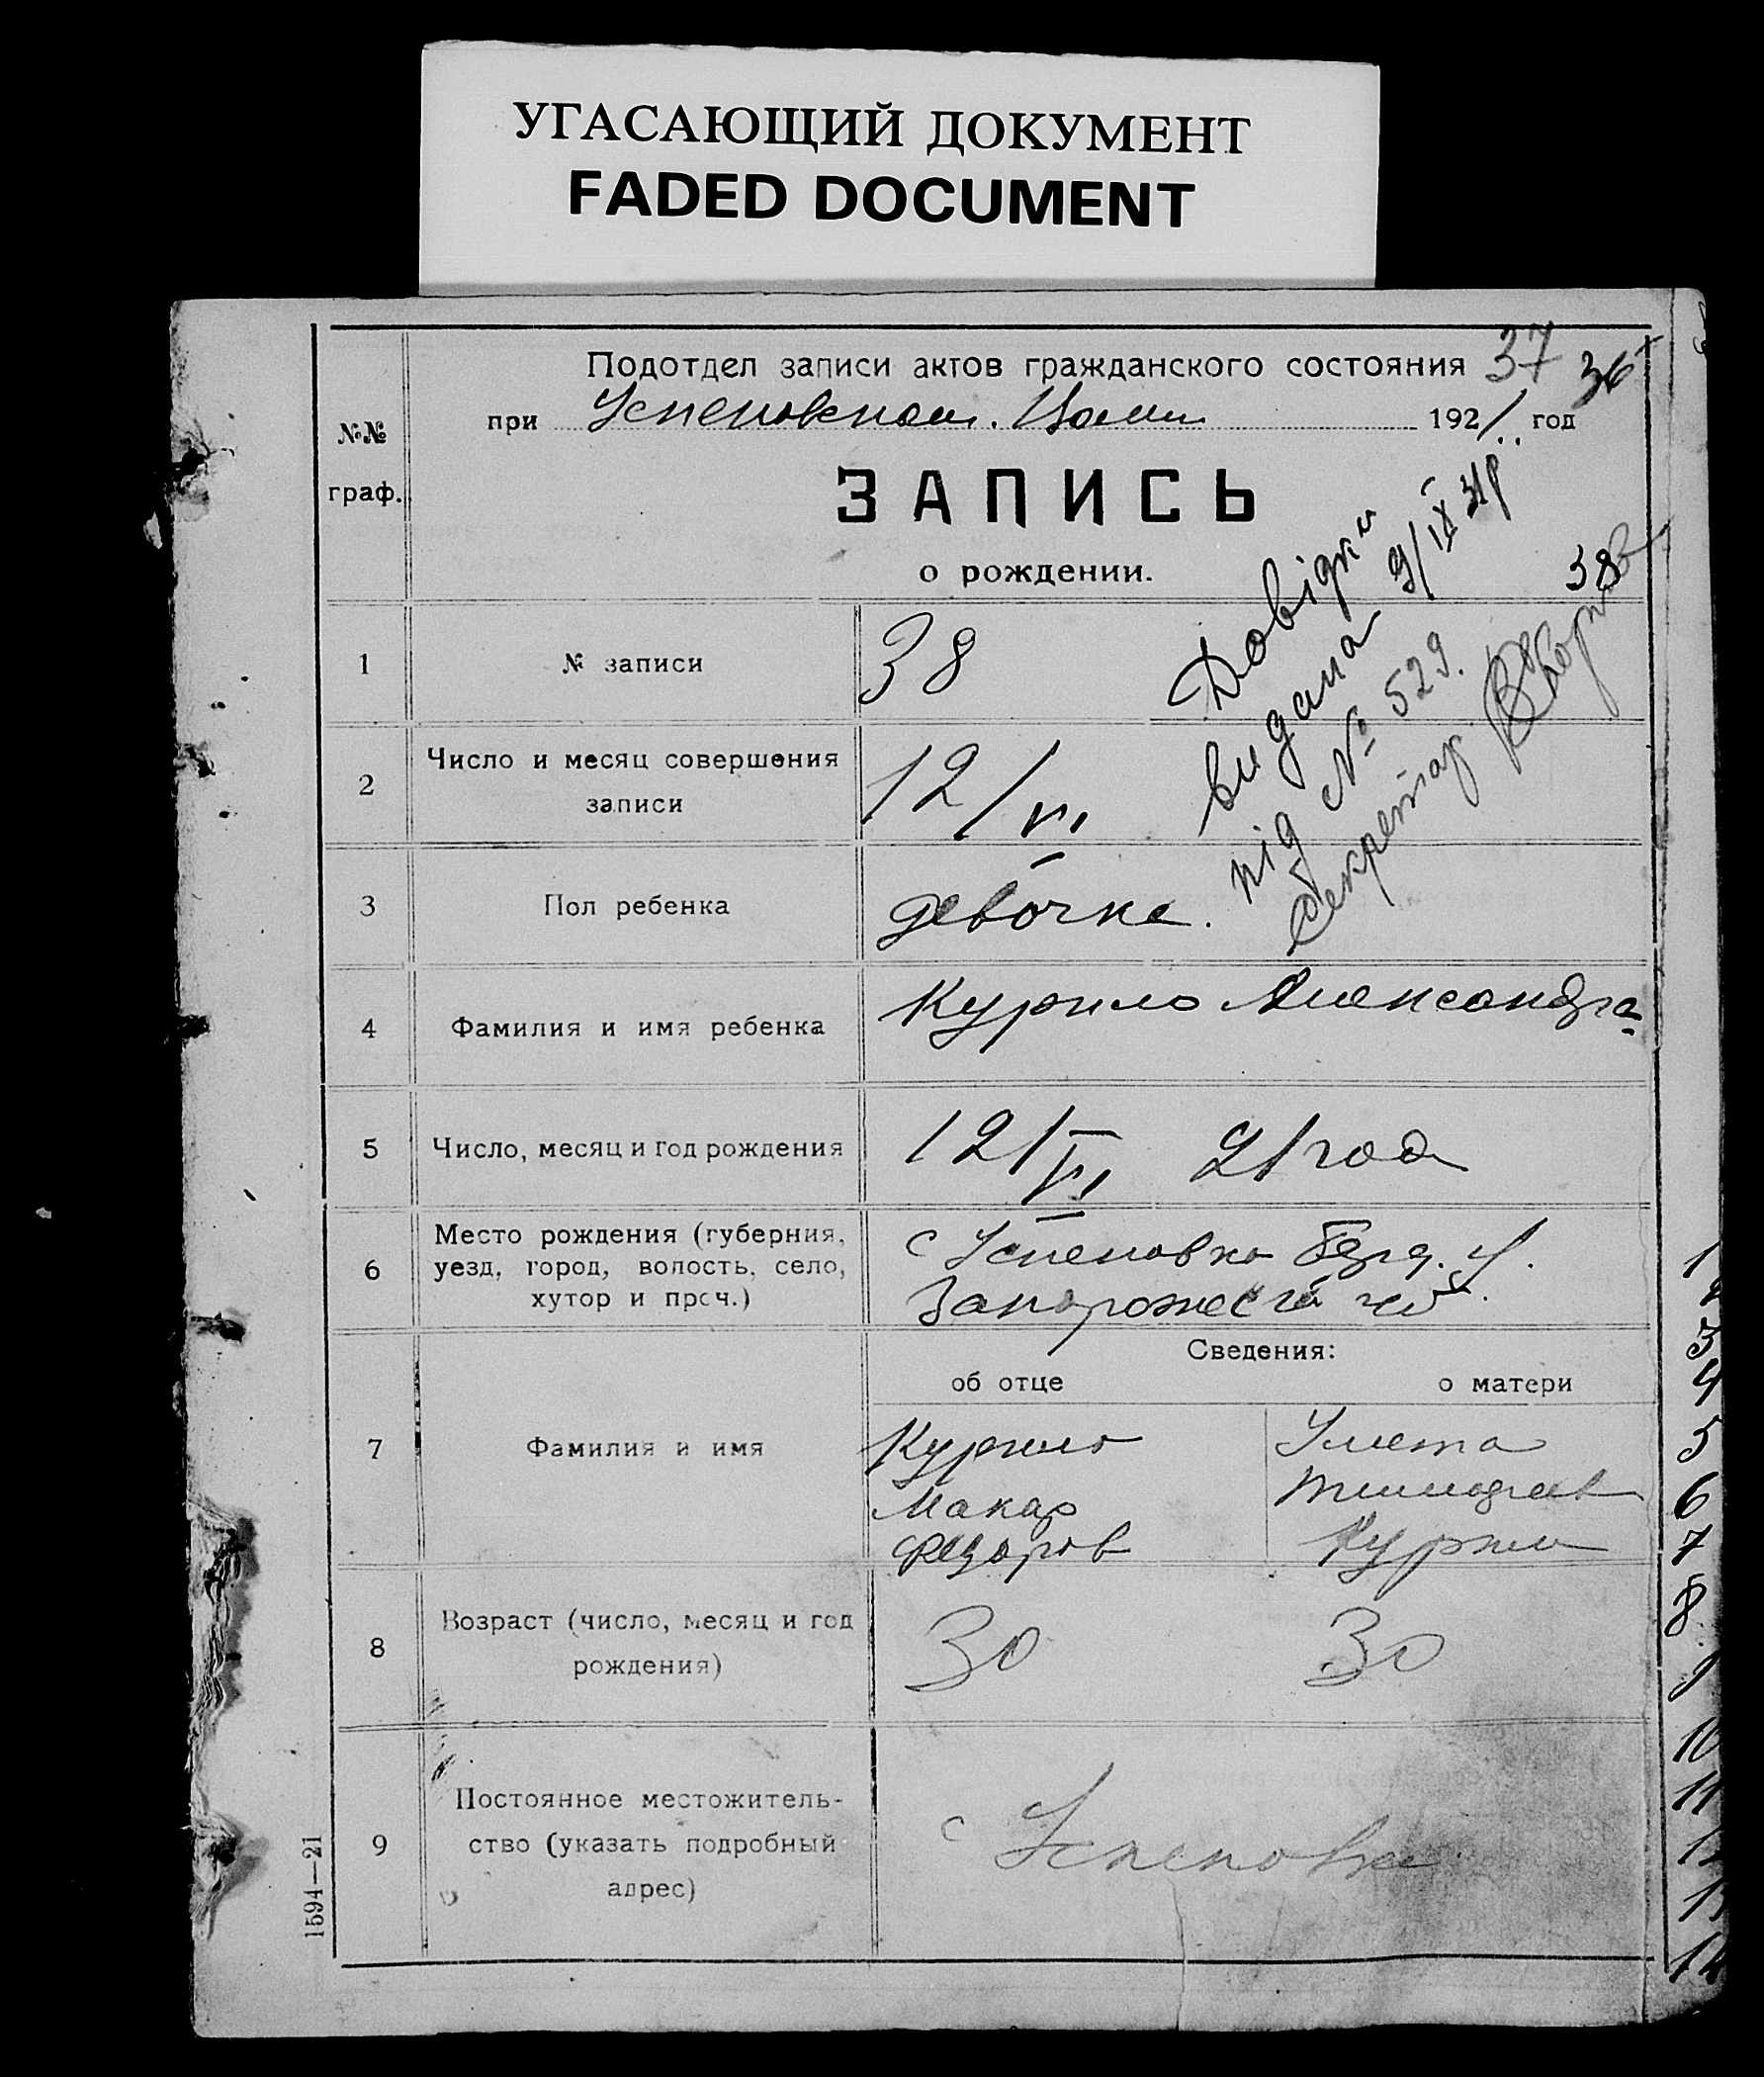 УГАСАЮЩИЙ ДОКУМЕНТ
FADED DOCUMENT
Подотдел записи актов гражданского состояния 37 36
при Успеновском. 1921 год
№№
граф.
ЗАПИСЬ
о рождении.
Довідки
видана 9/IX 31р
під № 529.
Секретар
38
1 № записи 38
2 Число и месяц совершения
записи
12/VI
3 Пол ребенка девочка.
4 Фамилия и имя ребенка Курило Александра
5 Число, месяц и год рождения 12/VI 21 года
6 Место рождения (губерния,
уезд, город, волость, село,
хутор и проч.)
с Успеновка Берд. у.
Запорожской губ.
Сведения:
об отце о матери
7 Фамилия и имя
Курило
Макар
Федоров
Курило
8 Возраст (число, месяц и год
рождения)
30 30
9 Постоянное местожитель-
ство (указать подробный
адрес)
с Успеновка
1594—21
1
2
3
4
5
6
7
8
9
10
11
12
13
14